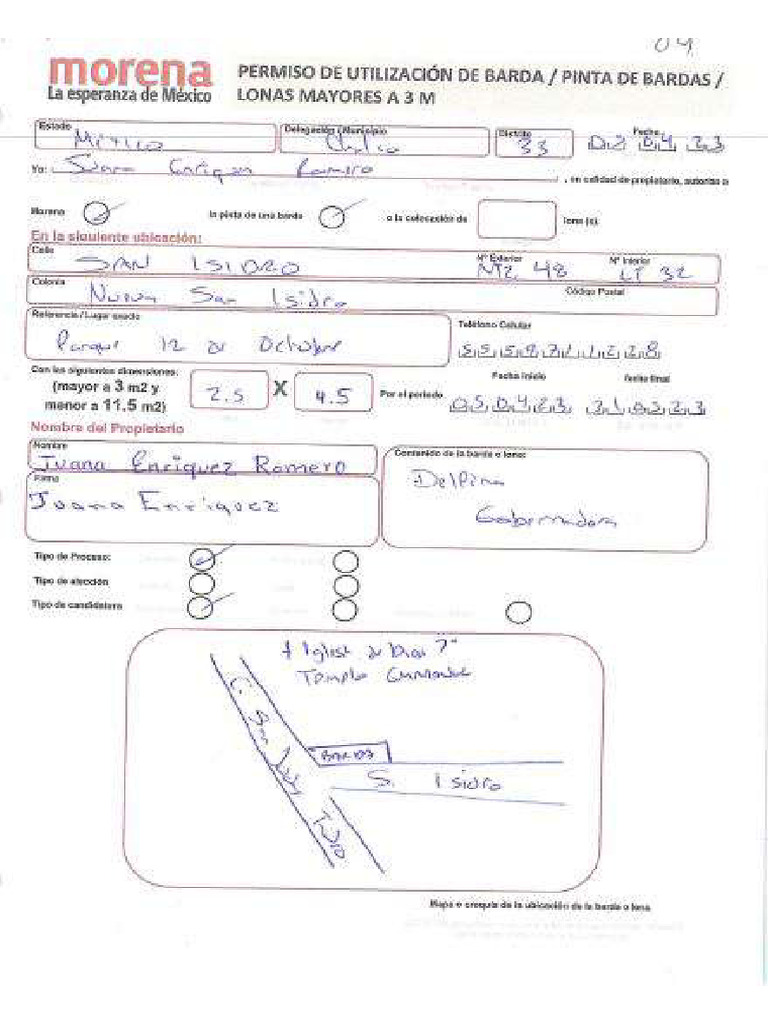 04
morena
La esperanza de México
PERMISO DE UTILIZACIÓN DE BARDA / PINTA DE BARDAS /
LONAS MAYORES A 3 M
Estado
México
Delegación / Municipio
Distrito
33
Fecha
02 04 23
Yo: Enriquez Romero, en calidad de propietario, autorizo a
Morena la pinta de una barda o la colocación de lona (s)
En la siguiente ubicación:
Calle
SAN ISIDRO
Nº Exterior
MZ 48
Nº Interior
LT 32
Colonia
Nueva San Isidro
Código Postal
Referencia / Lugar usado
Parque 12 de Octubre
Teléfono Celular
Con las siguientes dimensiones:
(mayor a 3 m2 y
menor a 11.5 m2)
2.5 X 4.5
Por el periodo
Fecha Inicio
050423
Fecha final
310523
Nombre del Propietario
Nombre
Juana Enriquez Romero
Firma
Juana Enriquez
Contenido de la barda o lona:
Delfina
Gobernadora
Tipo de Proceso:
Tipo de elección
Tipo de candidatura
Iglesia de Dios 7º
Templo
C. San
BARDA
S. Isidro
Mapa o croquis de la ubicación de la barda o lona